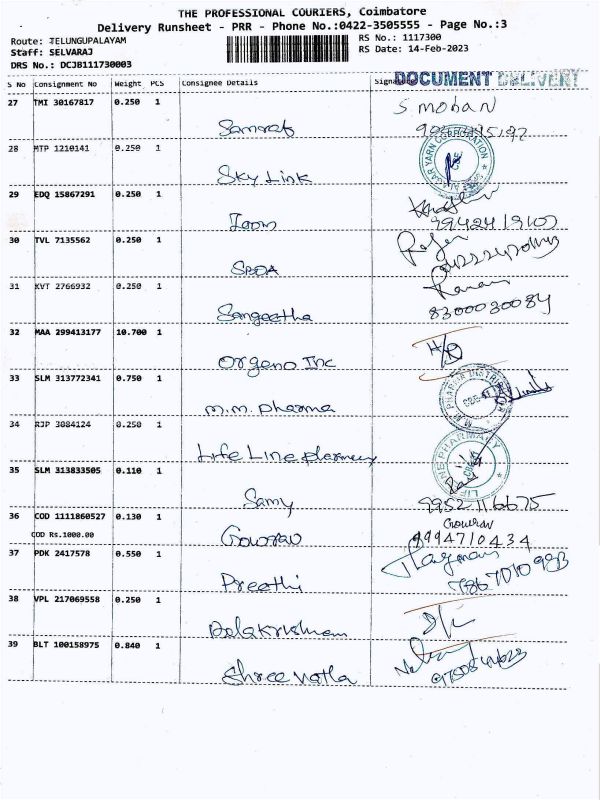 THE PROFESSIONAL COURIERS, Coimbatore
Delivery Runsheet - PRR - Phone No.:0422-3505555 - Page No.:3
Route: TELUNGUPALAYAM RS No.: 1117300
Staff: SELVARAJ RS Date: 14-Feb-2023
DRS No.: DCJB111730003
S No Consignment No Weight PCS Consignee Details Signature DOCUMENT DELIVERY
27 TMI 30167817 0.250 1 S. mohan
Samrat
28 MTP 1210141 0.250 1 YARN CORPORATION CBE
Sky Link
29 EDQ 15867291 0.250 1
Zoom
30 TVL 7135562 0.250 1
31 KVT 2766932 0.250 1
Sangeetha 8300030084
32 MAA 299413177 10.700 1
Orgeno Inc
33 SLM 313772341 0.750 1 PHARMA
M.M. Pharma
34 RJP 3084124 0.250 1 PHARMACY
Life Line pharmacy
35 SLM 313833505 0.110 1
Samy 9952116675
36 COD 1111860527 0.130 1 Gowrav
COD Rs.1000.00 Gowrav 9994710434
37 PDK 2417578 0.550 1
Preethi
38 VPL 217069558 0.250 1
Balakrishnan
39 BLT 100158975 0.840 1
Shree vatla